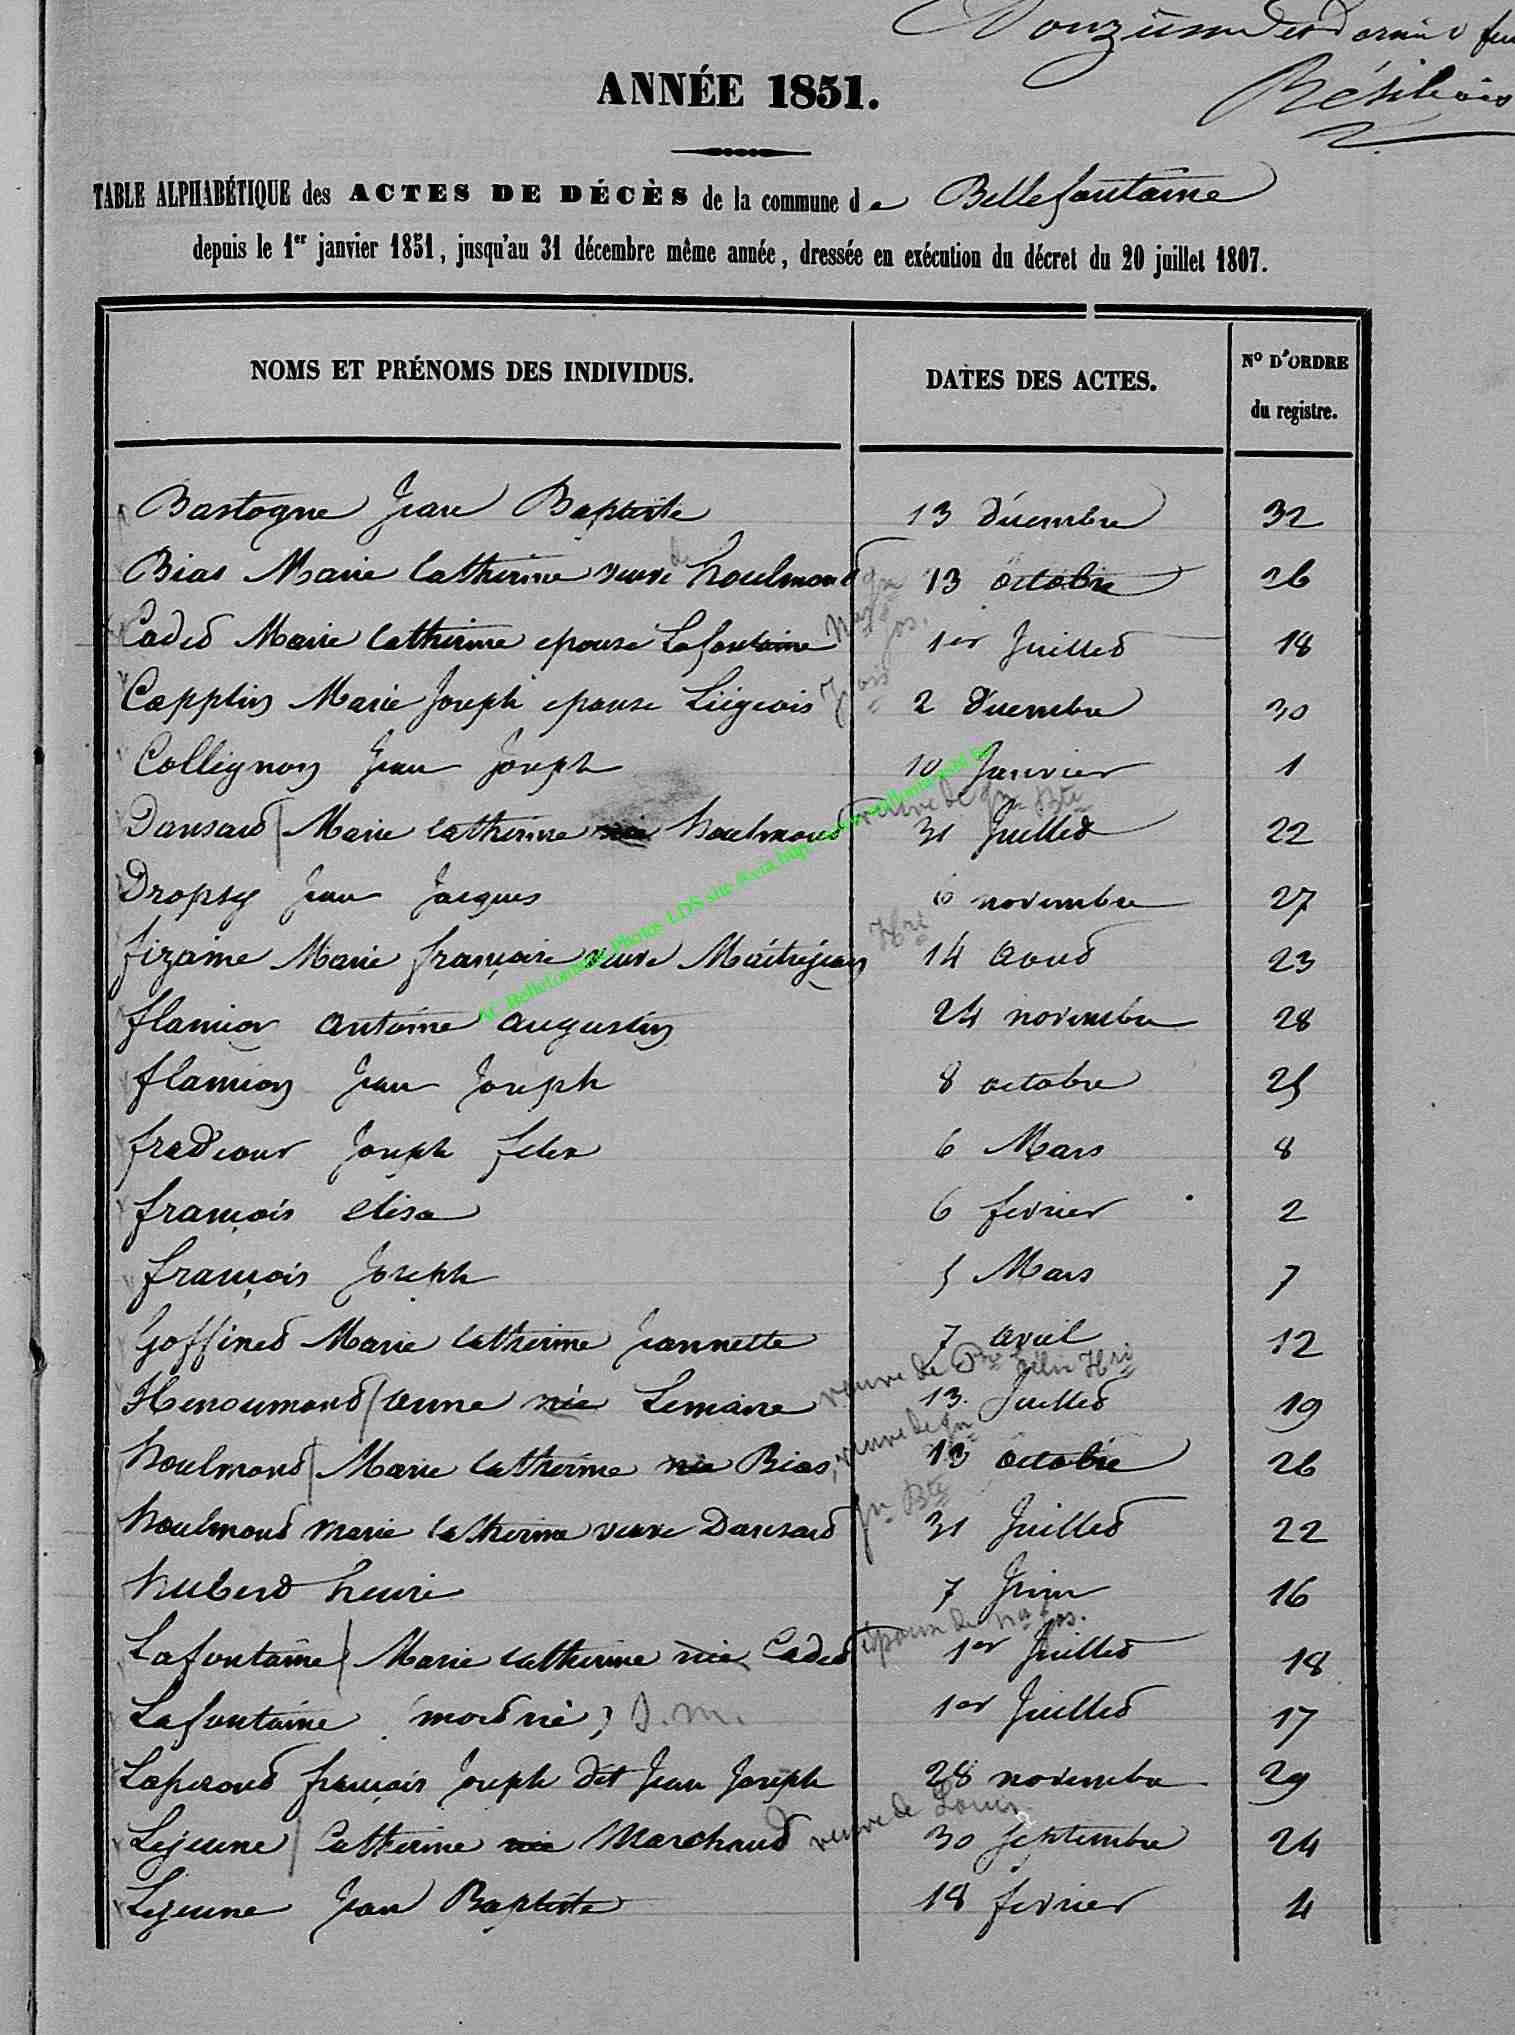 Douzième et dernier feu
ANNÉE 1851.
TABLE ALPHABÉTIQUE des ACTES DE DÉCÈS de la commune de Bellefontaine
depuis le 1er janvier 1851, jusqu'au 31 décembre même année, dressée en exécution du décret du 20 juillet 1807.
NOMS ET PRÉNOMS DES INDIVIDUS. DATES DES ACTES. No D'ORDRE
du registre.
Bastogne Jean Baptiste 13 décembre 32
Bias Marie Catherine veuve de houlmont Jn 13 octobre 26
Cadet Marie Catherine epouse Lafontaine Jos. 1er Juillet 18
Capplin Marie Joseph epouse Liégeois 2 décembre 30
Collignon Jean Joseph 10 Janvier 1
Dansard Marie Catherine née houlmont veuve de Jn Bte 31 Juillet 22
Dropsy Jean Jacques 6 novembre 27
fizaine Marie françoise veuve Maitrejean Hri 14 aout 23
flamion antoine augustin 24 novembre 28
flamion Jean Joseph 8 octobre 25
fradcour Joseph felix 6 Mars 8
françois elisa 6 fevrier 2
françois Joseph 5 Mars 7
Goffinet Marie Catherine Jeannette 7 avril 12
Henoumont anne née Lemaire veuve de Hri 13 Juillet 19
houlmont Marie Catherine née Bias, veuve de Jn 13 octobre 26
houlmont marie Catherine veuve Dansard Jn Bte 31 Juillet 22
hubert henri 7 Juin 16
Lafontaine Marie Catherine née Cadet épouse de Jos. 1er Juillet 18
Lafontaine mort né, s.m. 1er Juillet 17
Laperout françois Joseph dit Jean Joseph 28 novembre 29
Lejeune Catherine née Marchand veuve de Louis 30 septembre 24
Lejeune Jean Baptiste 18 fevrier 4